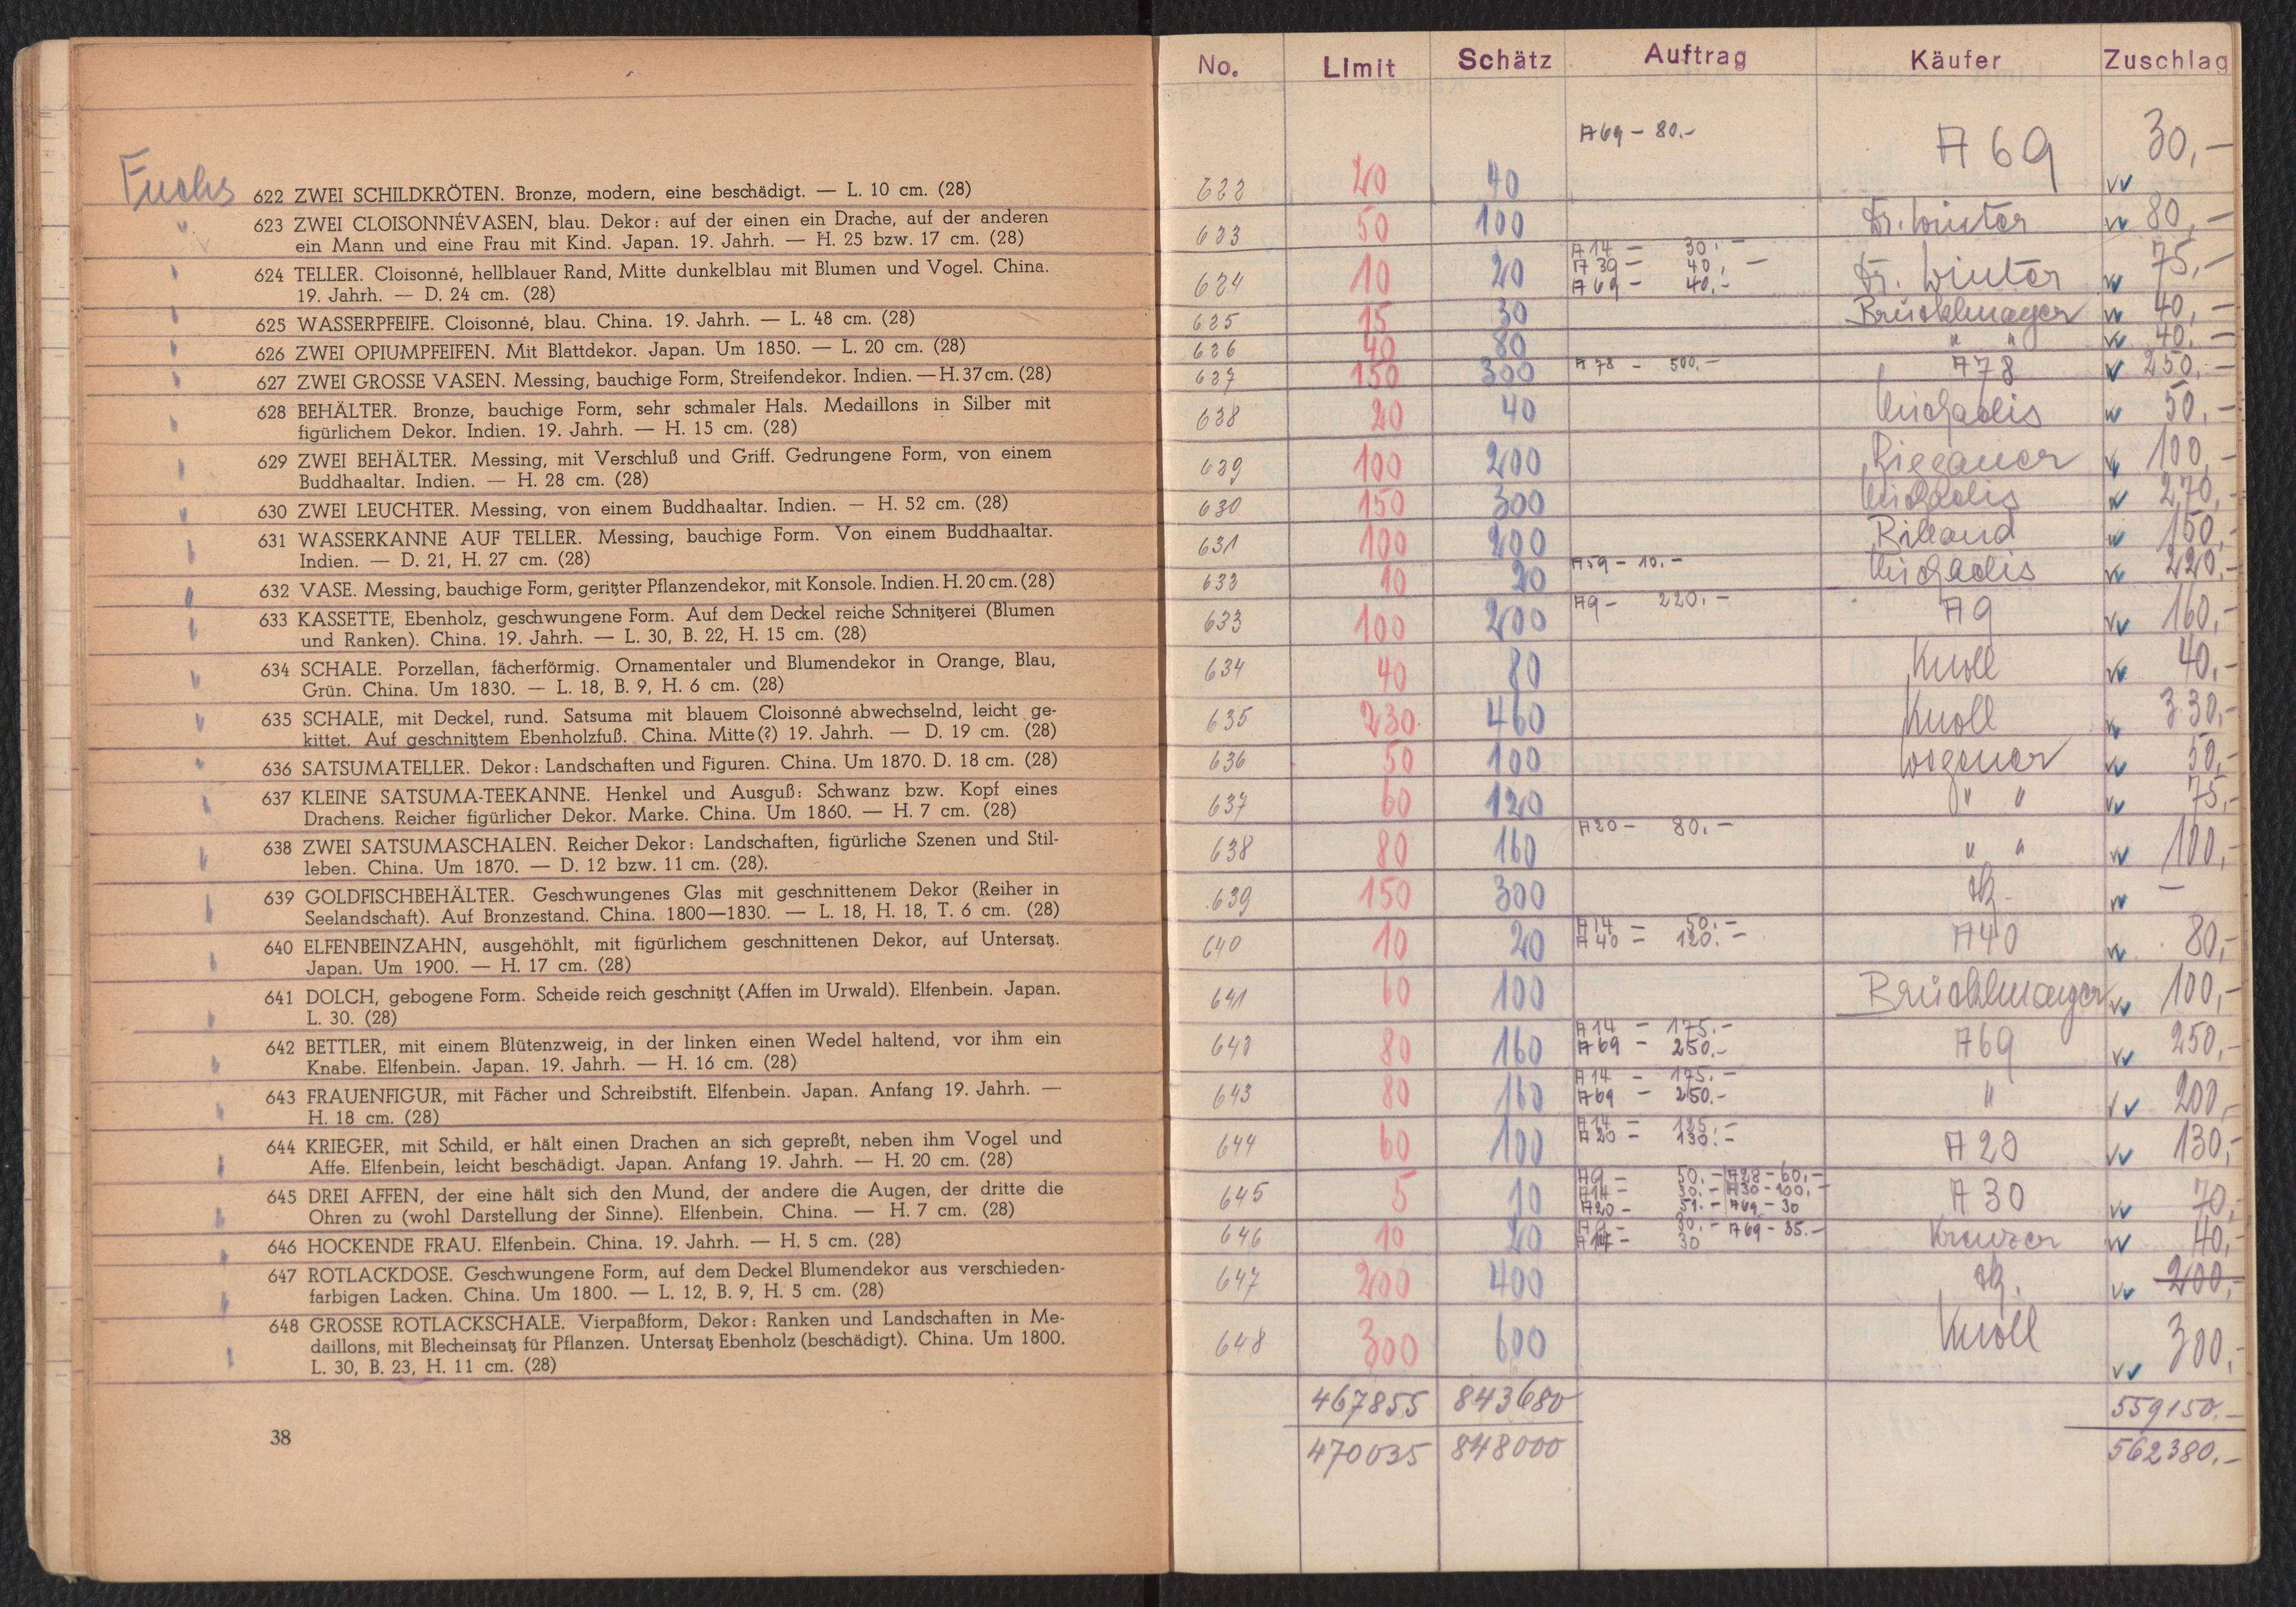 Fuchs
622 ZWEI SCHILDKRÖTEN. Bronze, modern, eine beschädigt. — L. 10 cm. (28)
623 ZWEI CLOISONNÉVASEN, blau. Dekor: auf der einen ein Drache, auf der anderen
ein Mann und eine Frau mit Kind. Japan. 19. Jahrh. — H. 25 bzw. 17 cm. (28)
624 TELLER. Cloisonné, hellblauer Rand, Mitte dunkelblau mit Blumen und Vogel. China.
19. Jahrh. — D. 24 cm. (28)
625 WASSERPFEIFE. Cloisonné, blau. China. 19. Jahrh. — L. 48 cm. (28)
626 ZWEI OPIUMPFEIFEN. Mit Blattdekor. Japan. Um 1850. — L. 20 cm. (28)
627 ZWEI GROSSE VASEN. Messing, bauchige Form, Streifendekor. Indien. — H. 37 cm. (28)
628 BEHÄLTER. Bronze, bauchige Form, sehr schmaler Hals. Medaillons in Silber mit
figürlichem Dekor. Indien. 19. Jahrh. — H. 15 cm. (28)
629 ZWEI BEHÄLTER. Messing, mit Verschluß und Griff. Gedrungene Form, von einem
Buddhaaltar. Indien. — H. 28 cm. (28)
630 ZWEI LEUCHTER. Messing, von einem Buddhaaltar. Indien. — H. 52 cm. (28)
631 WASSERKANNE AUF TELLER. Messing, bauchige Form. Von einem Buddhaaltar.
Indien. — D. 21, H. 27 cm. (28)
632 VASE. Messing, bauchige Form, geritzter Pflanzendekor, mit Konsole. Indien. H. 20 cm. (28)
633 KASSETTE, Ebenholz, geschwungene Form. Auf dem Deckel reiche Schnitzerei (Blumen
und Ranken). China. 19. Jahrh. — L. 30, B. 22, H. 15 cm. (28)
634 SCHALE. Porzellan, fächerförmig. Ornamentaler und Blumendekor in Orange, Blau,
Grün. China. Um 1830. — L. 18, B. 9, H. 6 cm. (28)
635 SCHALE, mit Deckel, rund. Satsuma mit blauem Cloisonné abwechselnd, leicht ge-
kittet. Auf geschnitztem Ebenholzfuß. China. Mitte (?) 19. Jahrh. — D. 19 cm. (28)
636 SATSUMATELLER. Dekor: Landschaften und Figuren. China. Um 1870. D. 18 cm. (28)
637 KLEINE SATSUMA-TEEKANNE. Henkel und Ausguß: Schwanz bzw. Kopf eines
Drachens. Reicher figürlicher Dekor. Marke. China. Um 1860. — H. 7 cm. (28)
638 ZWEI SATSUMASCHALEN. Reicher Dekor: Landschaften, figürliche Szenen und Stil-
leben. China. Um 1870. — D. 12 bzw. 11 cm. (28).
639 GOLDFISCHBEHÄLTER. Geschwungenes Glas mit geschnittenem Dekor (Reiher in
Seelandschaft). Auf Bronzestand. China. 1800—1830. — L. 18, H. 18, T. 6 cm. (28)
640 ELFENBEINZAHN, ausgehöhlt, mit figürlichem geschnittenen Dekor, auf Untersatz.
Japan. Um 1900. — H. 17 cm. (28)
641 DOLCH, gebogene Form. Scheide reich geschnitzt (Affen im Urwald). Elfenbein. Japan.
L. 30. (28)
642 BETTLER, mit einem Blütenzweig, in der linken einen Wedel haltend, vor ihm ein
Knabe. Elfenbein. Japan. 19. Jahrh. — H. 16 cm. (28)
643 FRAUENFIGUR, mit Fächer und Schreibstift. Elfenbein. Japan. Anfang 19. Jahrh. —
H. 18 cm. (28)
644 KRIEGER, mit Schild, er hält einen Drachen an sich gepreßt, neben ihm Vogel und
Affe. Elfenbein, leicht beschädigt. Japan. Anfang 19. Jahrh. — H. 20 cm. (28)
645 DREI AFFEN, der eine hält sich den Mund, der andere die Augen, der dritte die
Ohren zu (wohl Darstellung der Sinne). Elfenbein. China. — H. 7 cm. (28)
646 HOCKENDE FRAU. Elfenbein. China. 19. Jahrh. — H. 5 cm. (28)
647 ROTLACKDOSE. Geschwungene Form, auf dem Deckel Blumendekor aus verschieden-
farbigen Lacken. China. Um 1800. — L. 12, B. 9, H. 5 cm. (28)
648 GROSSE ROTLACKSCHALE. Vierpaßform, Dekor: Ranken und Landschaften in Me-
daillons, mit Blecheinsatz für Pflanzen. Untersatz Ebenholz (beschädigt). China. Um 1800.
L. 30, B. 23, H. 11 cm. (28)
38
No. Limit Schätz Auftrag Käufer Zuschlag
622 20 40 A69 - 80.- A69 30,-
623 50 100 Dr. Winter 80,-
624 10 20 A14 - 30.- Dr. Winter 75,-
A39 - 40,-
A69 - 40.-
625 15 30 Brüschlmayer 40,-
626 40 80 " " 40,-
627 150 300 A78 - 500.- A78 250,-
628 20 40 Michaelis 50,-
629 100 200 100,-
630 150 300 Michaelis 270,-
631 100 200 150,-
632 10 20 A59 - 10.- Michaelis 220,-
633 100 200 A9 - 220.- A9 160,-
634 40 80 Knoll 40,-
635 230 460 Knoll 330,-
636 50 100 Wegener 50,-
637 60 120 " " 75,-
638 80 160 A20 - 80.- " " 100,-
639 150 300 —
640 10 20 A14 - 50.- A40 80,-
A40 - 120.-
641 60 100 Brüschlmayer 100,-
642 80 160 A14 - 175.- A69 250,-
A69 - 250.-
643 80 160 A14 - 175.- " 200,-
A69 - 250.-
644 60 100 A14 - 125.- A20 130,-
A20 - 130.-
645 5 10 A9 - 50.- A28 - 60.- A30 70,-
A14 - 50.- A30 - 100.-
A20 - 51.- A69 - 30
646 10 20 A9 - 30.- A69 - 35.- 40,-
A14 - 30
647 200 400 200,-
648 300 600 Knoll 300,-
467855 843680 559150.-
470035 848000 562380.-